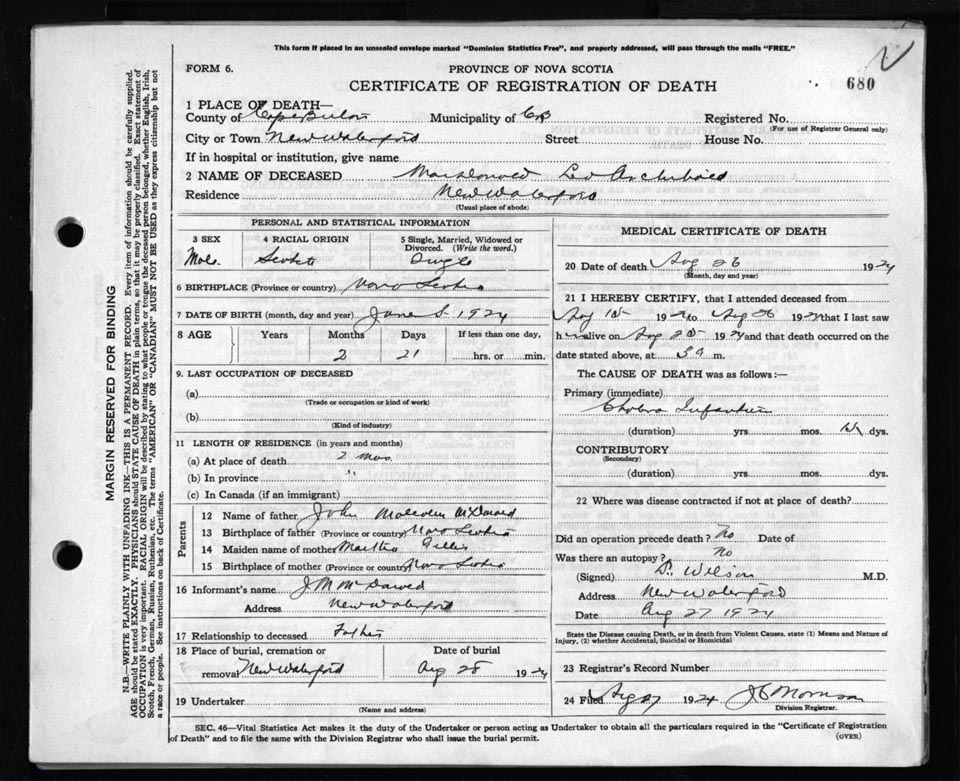 This form if placed in an unsealed envelope marked "Dominion Statistics Free", and properly addressed, will pass through the mails "FREE."
FORM 6.
PROVINCE OF NOVA SCOTIA
CERTIFICATE OF REGISTRATION OF DEATH
680
1 PLACE OF DEATH—
County of Cape Breton Municipality of CB Registered No.
(For use of Registrar General only)
City or Town New Waterford Street House No.
If in hospital or institution, give name
2 NAME OF DECEASED MacDonald Leo Archibald
Residence New Waterford
(Usual place of abode)
PERSONAL AND STATISTICAL INFORMATION
3 SEX 4 RACIAL ORIGIN 5 Single, Married, Widowed or Divorced. (Write the word.)
Male Scotch Single
6 BIRTHPLACE (Province or country) Nova Scotia
7 DATE OF BIRTH (month, day and year) June 5 1924
8 AGE Years Months Days If less than one day,
2 21 hrs. or min.
9. LAST OCCUPATION OF DECEASED
(a)
(Trade or occupation or kind of work)
(b)
(Kind of industry)
11 LENGTH OF RESIDENCE (in years and months)
(a) At place of death 2 mos.
(b) In province "
(c) In Canada (if an immigrant)
Parents
12 Name of father John Malcolm McDonald
13 Birthplace of father (Province or country) Nova Scotia
14 Maiden name of mother Martha Gillis
15 Birthplace of mother (Province or country) Nova Scotia
16 Informant's name J M McDonald
Address New Waterford
17 Relationship to deceased Father
18 Place of burial, cremation or Date of burial
removal New Waterford Aug 28 1924
19 Undertaker
(Name and address)
MEDICAL CERTIFICATE OF DEATH
20 Date of death Aug 26 1924
(Month, day and year)
21 I HEREBY CERTIFY, that I attended deceased from
Aug 15 1924 to Aug 26 1924 that I last saw
h alive on Aug 25 1924 and that death occurred on the
date stated above, at m.
The CAUSE OF DEATH was as follows:—
Primary (immediate)
Cholera Infantum
(duration) yrs. mos. dys.
CONTRIBUTORY
(Secondary)
(duration) yrs. mos. dys.
22 Where was disease contracted if not at place of death?
Did an operation precede death? No Date of
Was there an autopsy? No
(Signed) Wilson M.D.
Address New Waterford
Date Aug 27 1924
State the Disease causing Death, or in death from Violent Causes, state (1) Means and Nature of
Injury, (2) whether Accidental, Suicidal or Homicidal
23 Registrar's Record Number
24 Filed Aug 27 1924 J C Morrison
Division Registrar.
SEC. 46—Vital Statistics Act makes it the duty of the Undertaker or person acting as Undertaker to obtain all the particulars required in the "Certificate of Registration
of Death" and to file the same with the Division Registrar who shall issue the burial permit.
(OVER)
MARGIN RESERVED FOR BINDING
N.B.—WRITE PLAINLY WITH UNFADING INK—THIS IS A PERMANENT RECORD. Every item of information should be carefully supplied.
AGE should be stated EXACTLY. PHYSICIANS should STATE CAUSE OF DEATH in plain terms, so that it may be properly classified. Exact statement of
OCCUPATION is very important. RACIAL ORIGIN will be described by stating to what people or tongue the deceased person belonged, whether English, Irish,
Scotch, French, German, Russian, Ruthenian, etc. The terms "AMERICAN" OR "CANADIAN" MUST NOT BE USED as they express citizenship but not
a race or people. See instructions on back of Certificate.